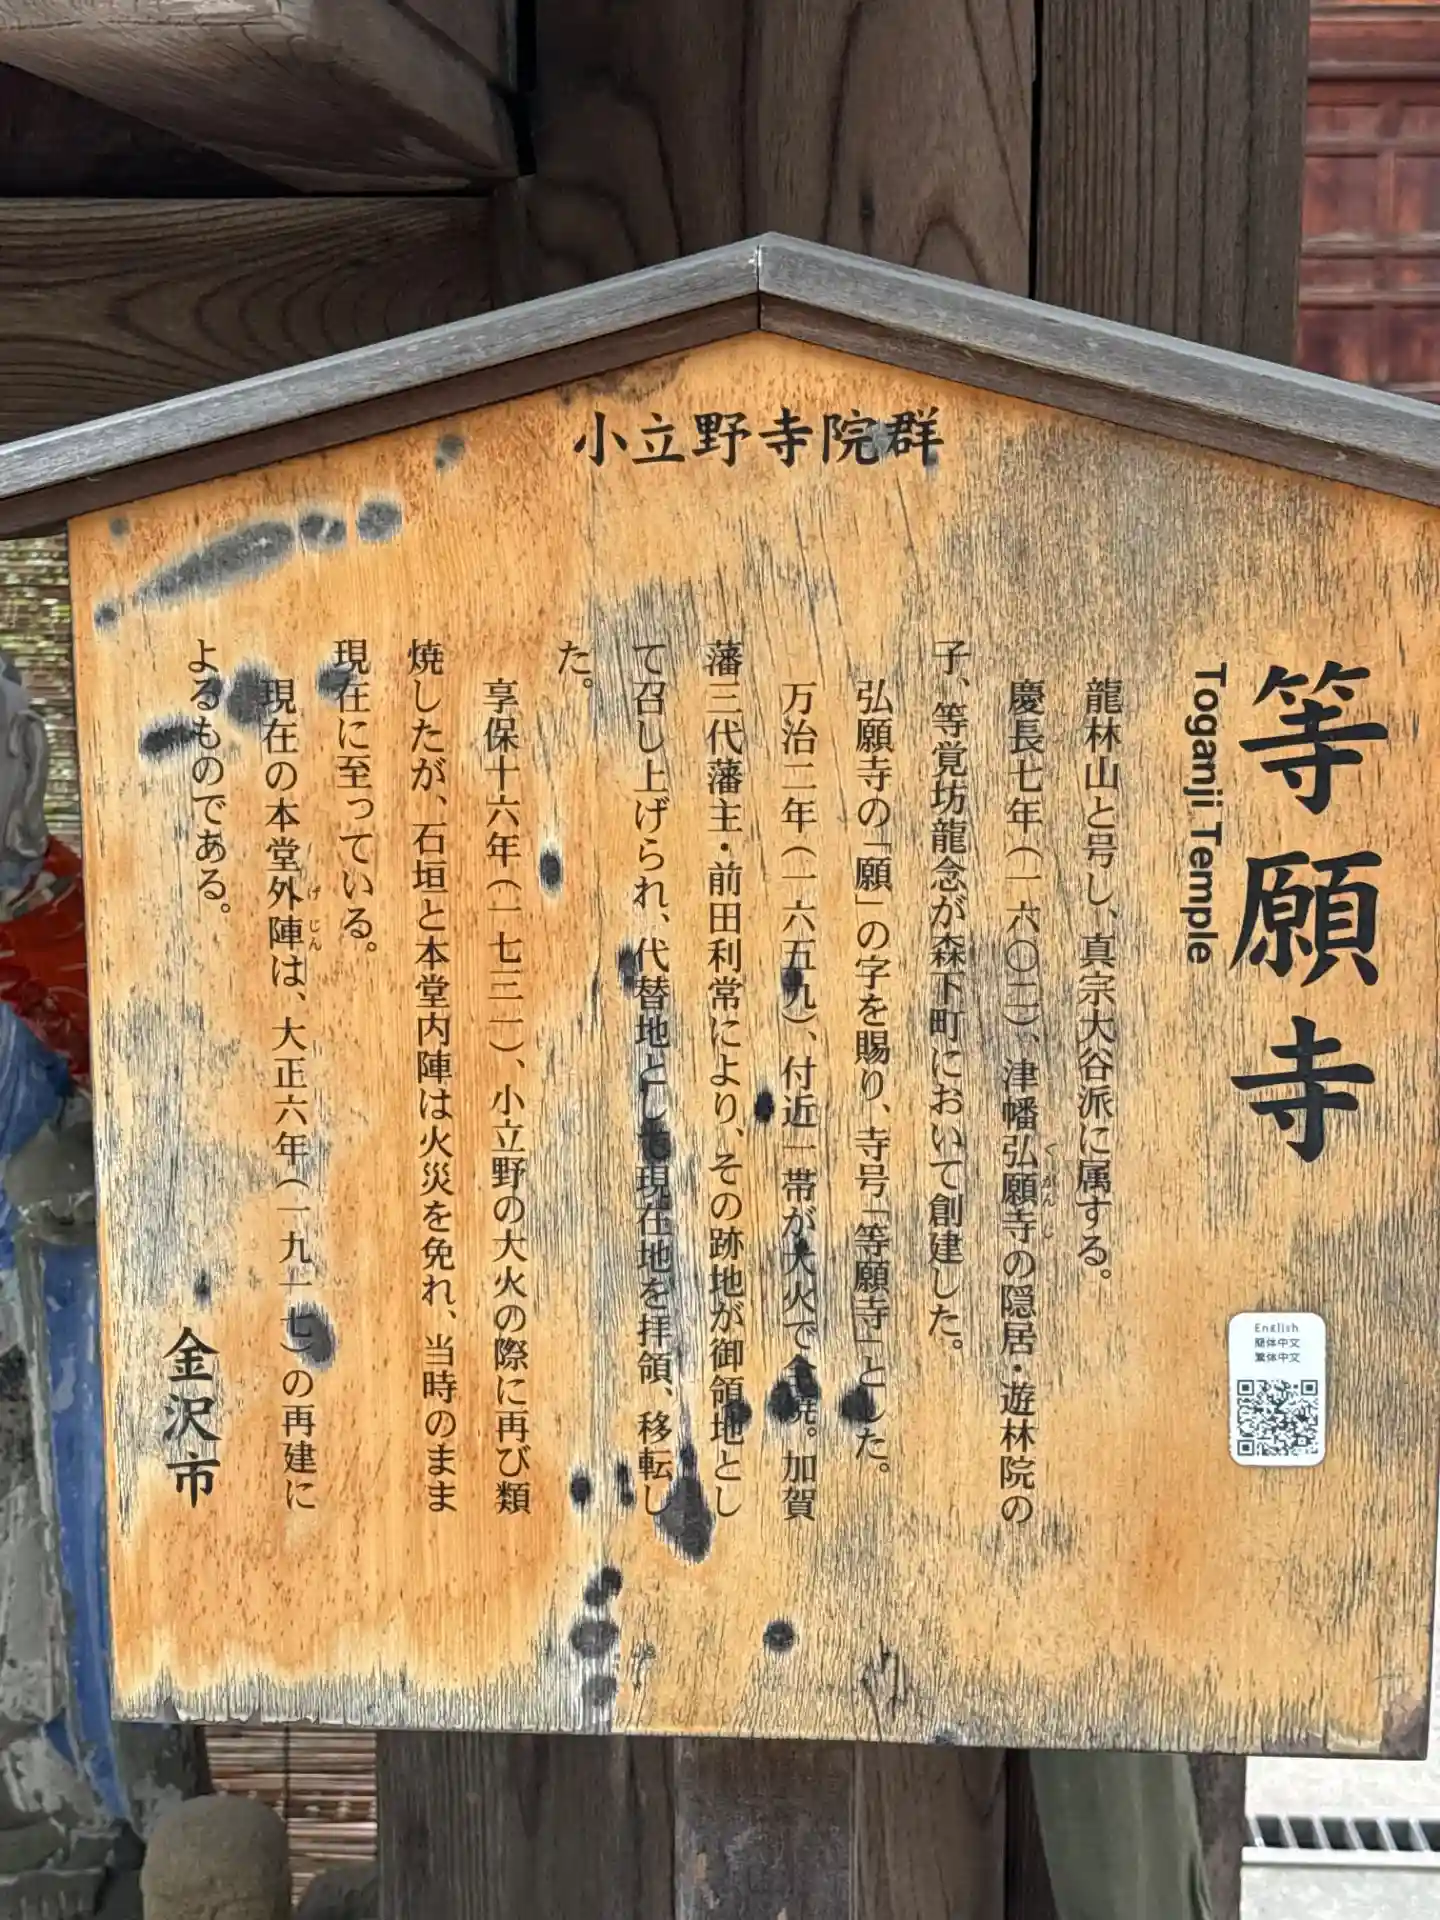 小立野寺院群
等願寺
Toganji Temple
龍林山と号し、真宗大谷派に属する。
慶長七年（一六〇二）、津幡弘願寺の隠居・遊林院の
ぐがんじ
子、等覚坊龍念が森下町において創建した。
弘願寺の「願」の字を賜り、寺号「等願寺」とした。
万治二年（一六五九）、付近一帯が大火で全焼。加賀
藩三代藩主・前田利常により、その跡地が御領地とし
て召し上げられ、代替地として現在地を拝領、移転し
た。
享保十六年（一七三一）、小立野の大火の際に再び類
焼したが、石垣と本堂内陣は火災を免れ、当時のまま
現在に至っている。
現在の本堂外陣は、大正六年（一九一七）の再建に
げじん
よるものである。
金沢市
English
簡体中文
繁体中文